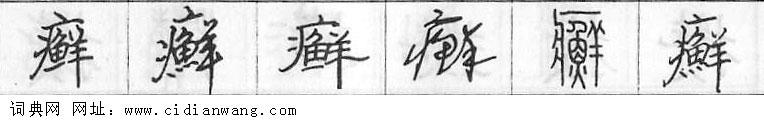 癣 癬 癣 癣 癬 癬
词典网 网址：www.cidianwang.com